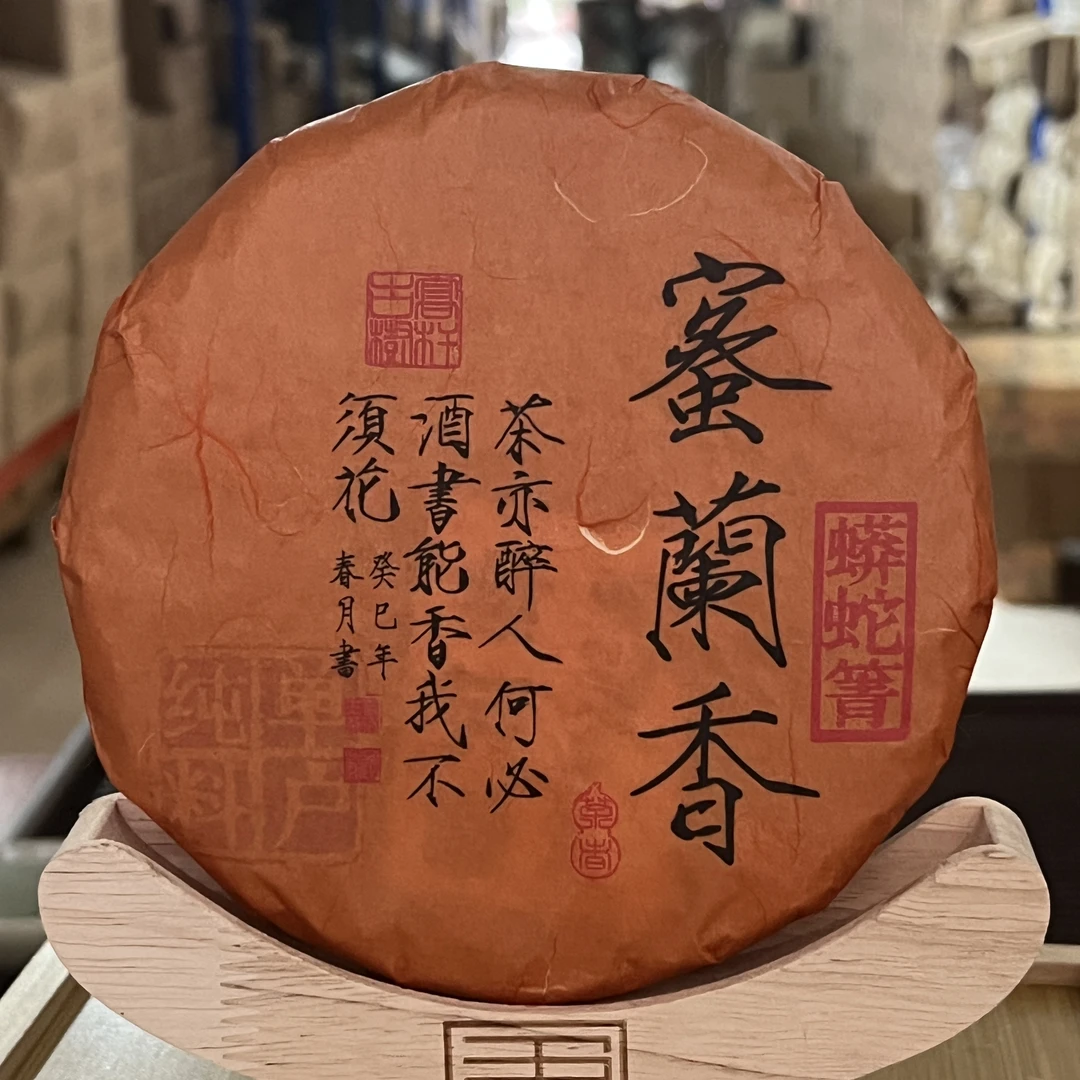 蟒蛇箐
蜜蘭香
茶亦醉人何必
酒書能香我不
須花
癸巳年
春月書
高杆
古樹
单户
纯料